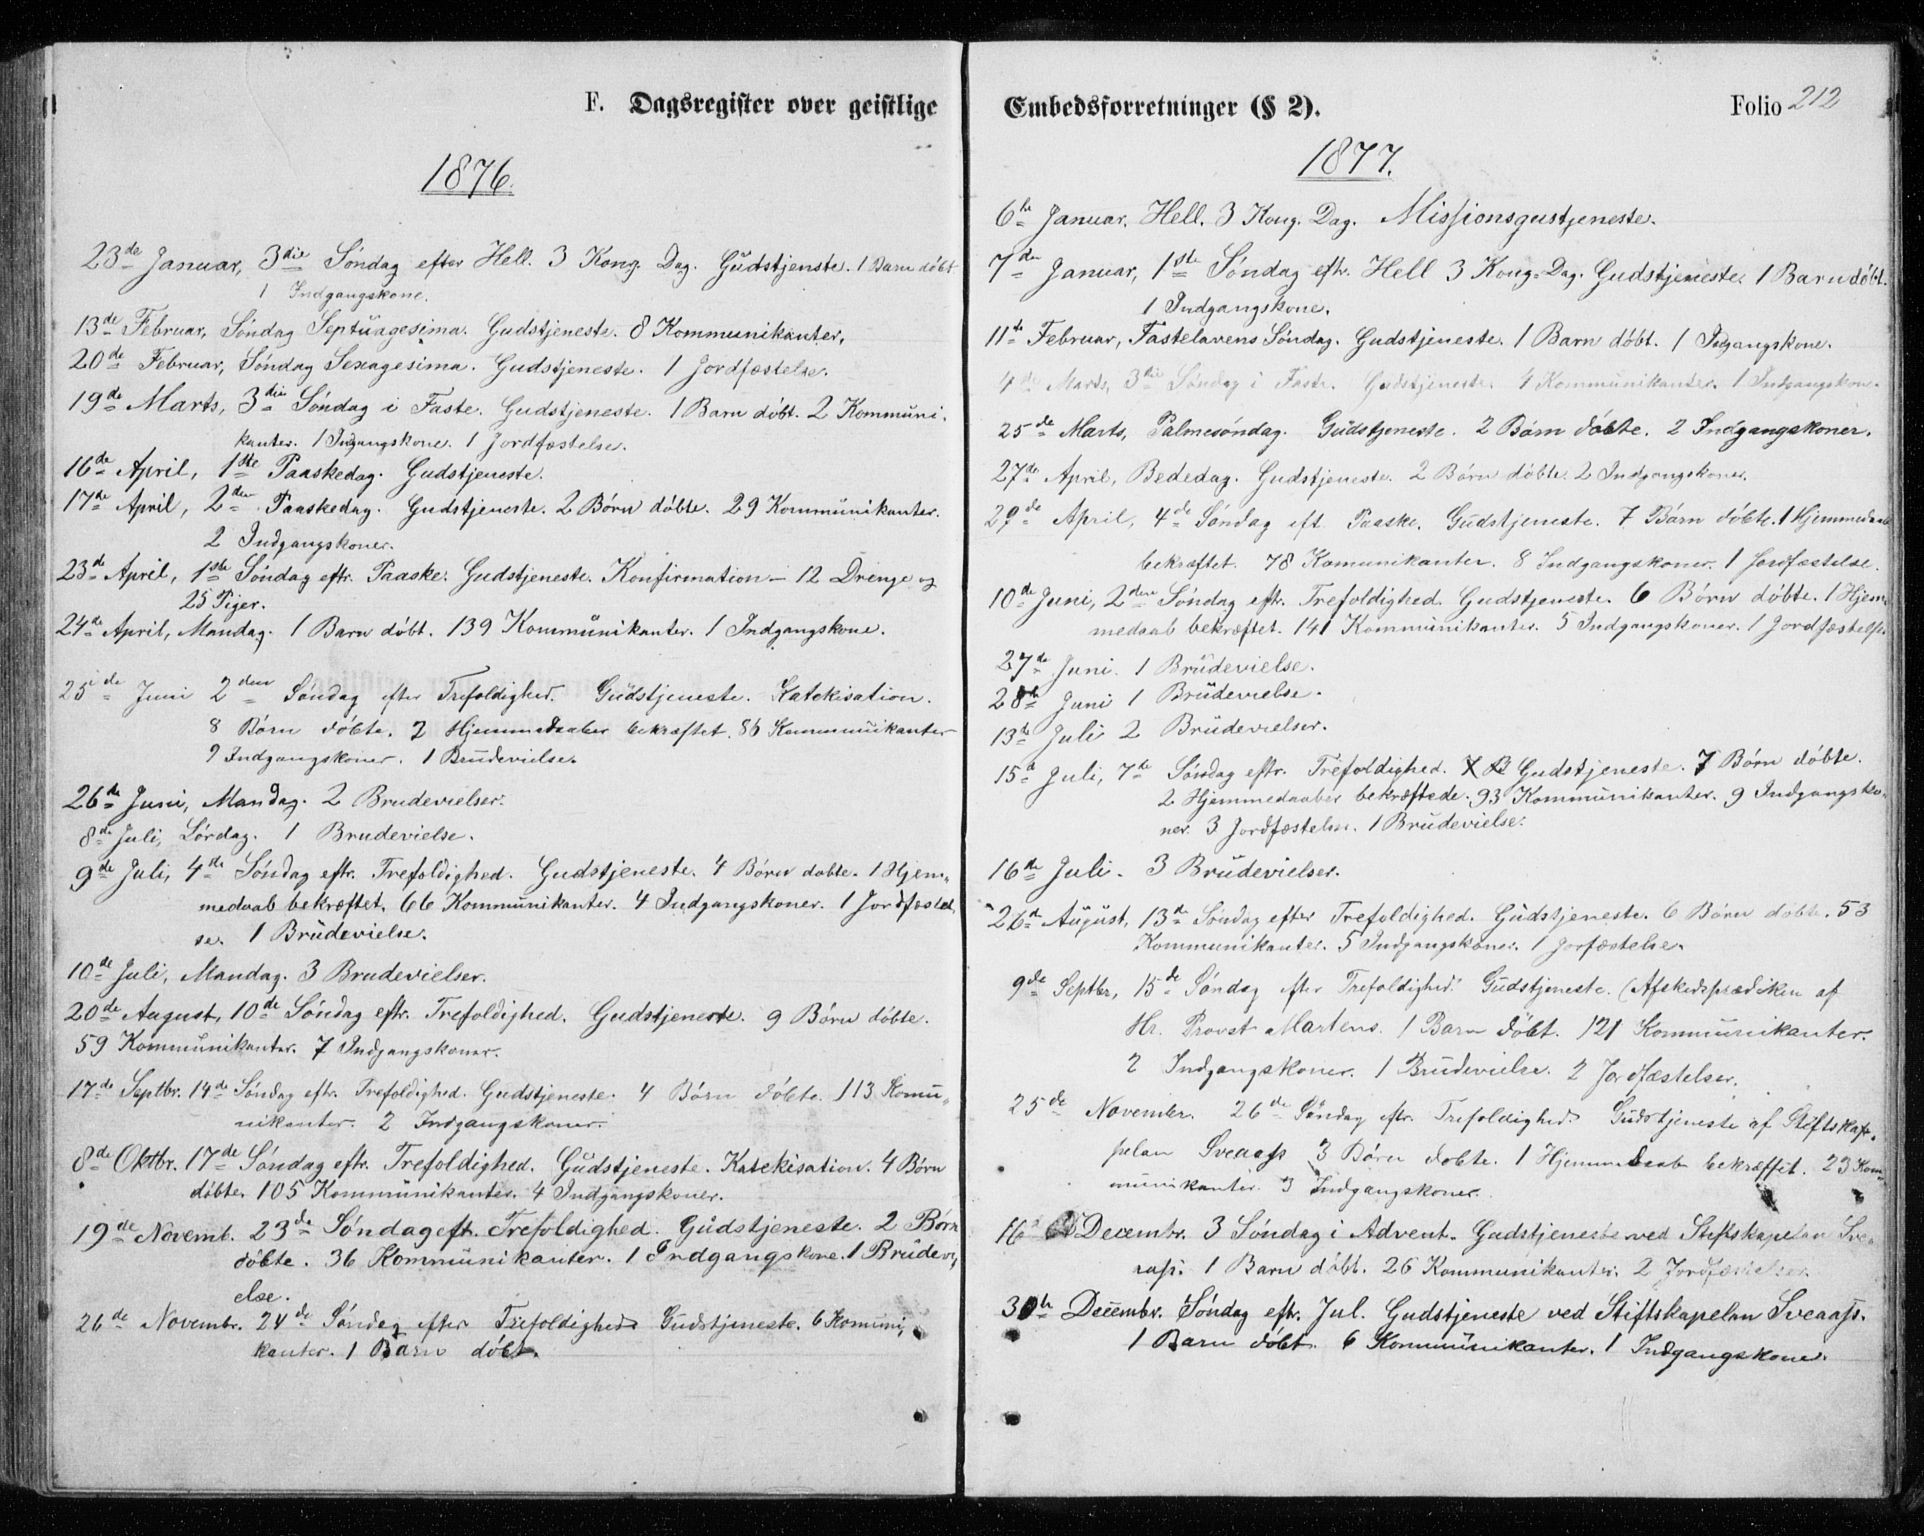 F. Dagsregister over geistlige
1876.
23de Januar, 3die Söndag efter Hell. 3 Kong. Dag. Gudstjenste. 1 Barn döbt
1 Indgangskone.
13de Februar, Söndag Septuagesima. Gudstjeneste. 8 Kommunikanter,
20de Februar, Söndag Sexagesima. Gudstjeneste. 1 Jordfæstelse.
19de Marts, 3die Söndag i Faste. Gudstjeneste. 1 Barn döbt. 2 Kommuni-
kanter. 1 Indgangskone. 1 Jordfæstelse.
16de April, 1ste Paaskedag. Gudstjeneste.
17de April, 2den Paaskedag. Gudstjeneste. 2 Börn döbte. 29 Kommunikanter.
2 Indgangskoner.
23de April, 1ste Söndag eftr. Paaske. Gudstjeneste. Konfirmation – 12 Drenge og
25 Piger.
24de April, Mandag. 1 Barn döbt. 139 Kommunikanter. 1 Indgangskone.
25de Juni 2den Söndag efter Trefoldighed. Gudstjeneste. Katekisation.
8 Börn döbte. 2 Hjemmedaaber bekræftet. 86 Kommunikanter
9 Indgangskoner. 1 Brudevielse.
26de Juni, Mandag. 2 Brudevielser.
8de Juli, Lördag. 1 Brudevielse.
9de Juli, 4de Söndag eftr. Trefoldighed. Gudstjeneste. 4 Börn döbte. 1 Hjem-
medaab bekræftet. 66 Kommunikanter. 4 Indgangskoner. 1 Jordfæstel
se. 1 Brudevielse.
10de Juli, Mandag. 3 Brudevielser.
20de August, 10de Söndag eftr. Trefoldighed. Gudstjeneste. 9 Börn döbte.
59 Kommunikanter. 7 Indgangskoner.
17de Septbr. 14de Söndag eftr. Trefoldighed. Gudstjeneste. 4 Börn döbte. 113 Komu-
nikanter. 2 Indgangskoner.
8de Oktbr. 17de Söndag eftr. Trefoldighed. Gudstjeneste. Katekisation. 4 Börn
döbte. 105 Kommunikanter. 4 Indgangskoner.
19de Novemb. 23de Söndag eft. Trefoldighed. Gudstjeneste. 2 Börn
döbte. 36 Kommunikanter. 1 Indgangskone. 1 Brudevi-
else.
26de Novembr. 24de Söndag efter Trefoldighed Gudstjeneste. 6 Komuni-
kanter. 1 Barn döbt.
Embedsforretninger (§ 2). Folio 212
1877.
6te Januar, Hell. 3 Kong. Dag. Missionsgustjeneste.
7de Januar, 1ste Söndag eftr. Hell 3 Kong-Dag. Gudstjeneste. 1 Barn döbt.
1 Indgangskone.
11te Februar, Fastelavens Söndag. Gudstjeneste. 1 Barn döbt. 1 Indgangskone.
4de Marts, 3die Söndag i Faste. Gudstjeneste. 4 Kommunikanter. 1 Indgangskone.
25de Marts, Palmesöndag. Gudstjeneste. 2 Börn döbte. 2 Indgangskoner.
27de April, Bededag. Gudstjeneste. 2 Börn döbte. 2 Indgangskoner.
29de April, 4de Söndag eft. Paaske. Gudstjeneste. 7 Börn döbte. 1 Hjemmedaab
bekræftet. 78 Komunikanter. 8 Indgangskoner. 1 Jordfæstelse.
10de Juni, 2den Söndag eftr. Trefoldighed. Gudstjeneste. 6 Börn döbte. 1 Hjem-
medaab bekræftet. 141 Kommunikanter. 5 Indgangskoner. 1 Jordfæstelse.
27de Juni. 1 Brudevielse.
28de Juni 1 Brudevielse.
13de Juli 2 Brudevielser.
15de Juli, 7de Söndag eftr. Trefoldighed. 7 B Gudstjeneste. 7 Börn döbte.
2 Hjemmedaaber bekræftede. 93 Kommunikanter. 9 Indgangsko-
ner. 3 Jordfæstelser. 1 Brudevielse.
16de Juli. 3 Brudevielser.
26de August, 13de Söndag efter Trefoldighed. Gudstjeneste. 6 Börn döbte. 53
Kommunikanter. 5 Indgangskoner. 1 Jorfæstelse.
9de Septbr, 15de Söndag efter Trefoldighed. Gudstjeneste. (Afskedsprædiken af
Hr. Provst Martens. 1 Barn döbt. 121 Kommunikanter.
2 Indgangskoner. 1 Brudevielse. 2 Jordfæstelser.
25de Novembr. 26de Söndag eftr. Trefoldighed Gudstjeneste af Stiftskap-
pelan Sveaass 3 Börn döbte. 1 Hjemmedaab bekræftet. 23 Kom-
munikanter. 3 Indgangskoner.
16de Decembr. 3 Söndag i Advent. Gudstjeneste ved Stiftskapelan Sve-
aass. 1 Barn döbt. 26 Kommunikanter. 2 Jordfæstelser.
30te Decembr. Söndag eftr. Jul. Gudstjeneste ved Stiftskapelan Sveaass.
1 Barn döbt. 6 Kommunikanter. 1 Indgangskone.